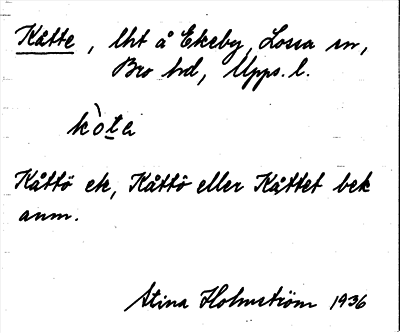 Kåtte, lht å Ekeby, Lossa sn,
Bro hd, Upps. l.
kòta
Kåttö ek, Kåttö eller Kåttet bek
anm.
Stina Holmström 1936